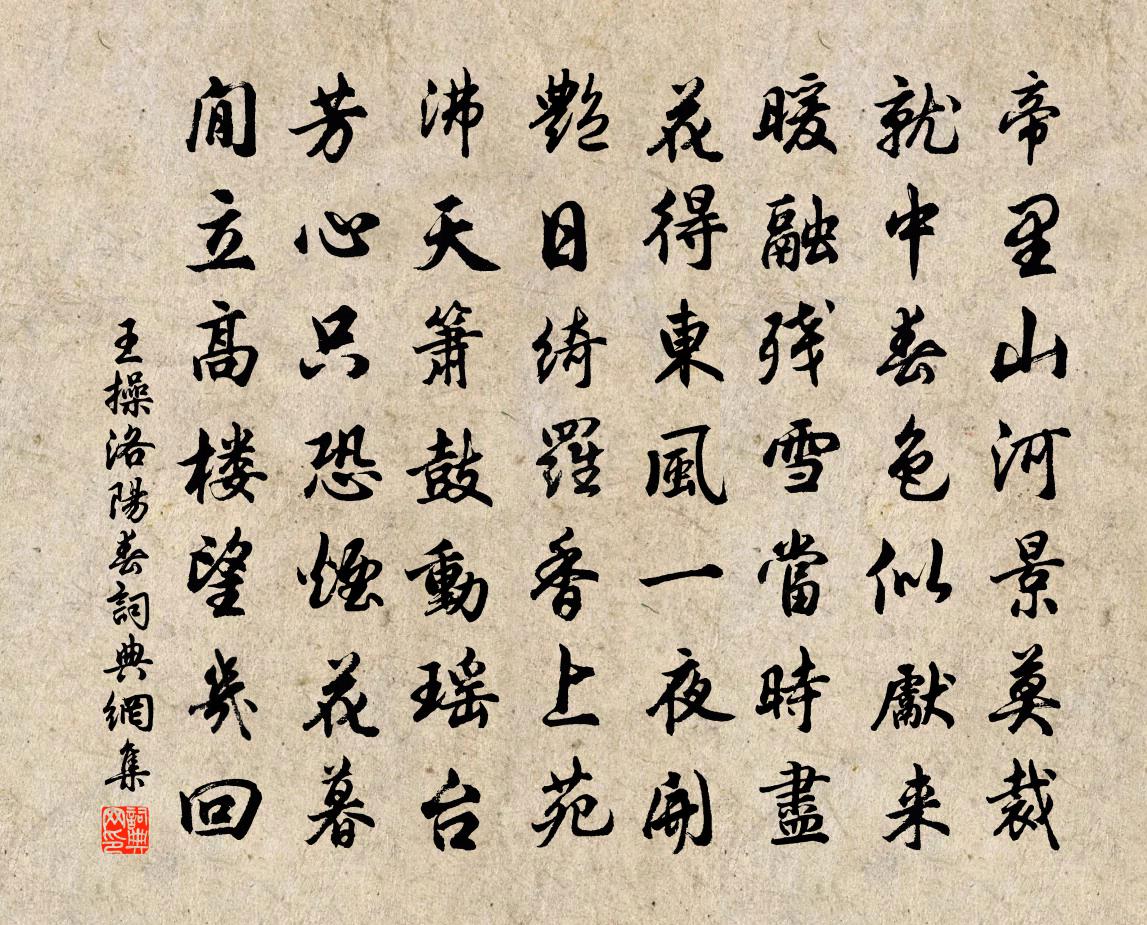 帝里山河景莫裁
就中春色似獻来
暖融残雪當時盡
花得東風一夜開
艷日綺羅香上苑
沸天簫鼓動瑶台
芳心只恐煙花暮
閒立高楼望幾回
王操洛陽春詞典網集
詞典網印